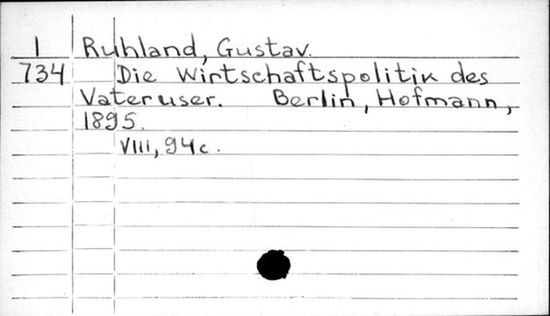 1 Ruhland, Gustav.
734 Die Wirtschaftspolitik des
Vateruser. Berlin, Hofmann,
1895.
VIII, 94 c.